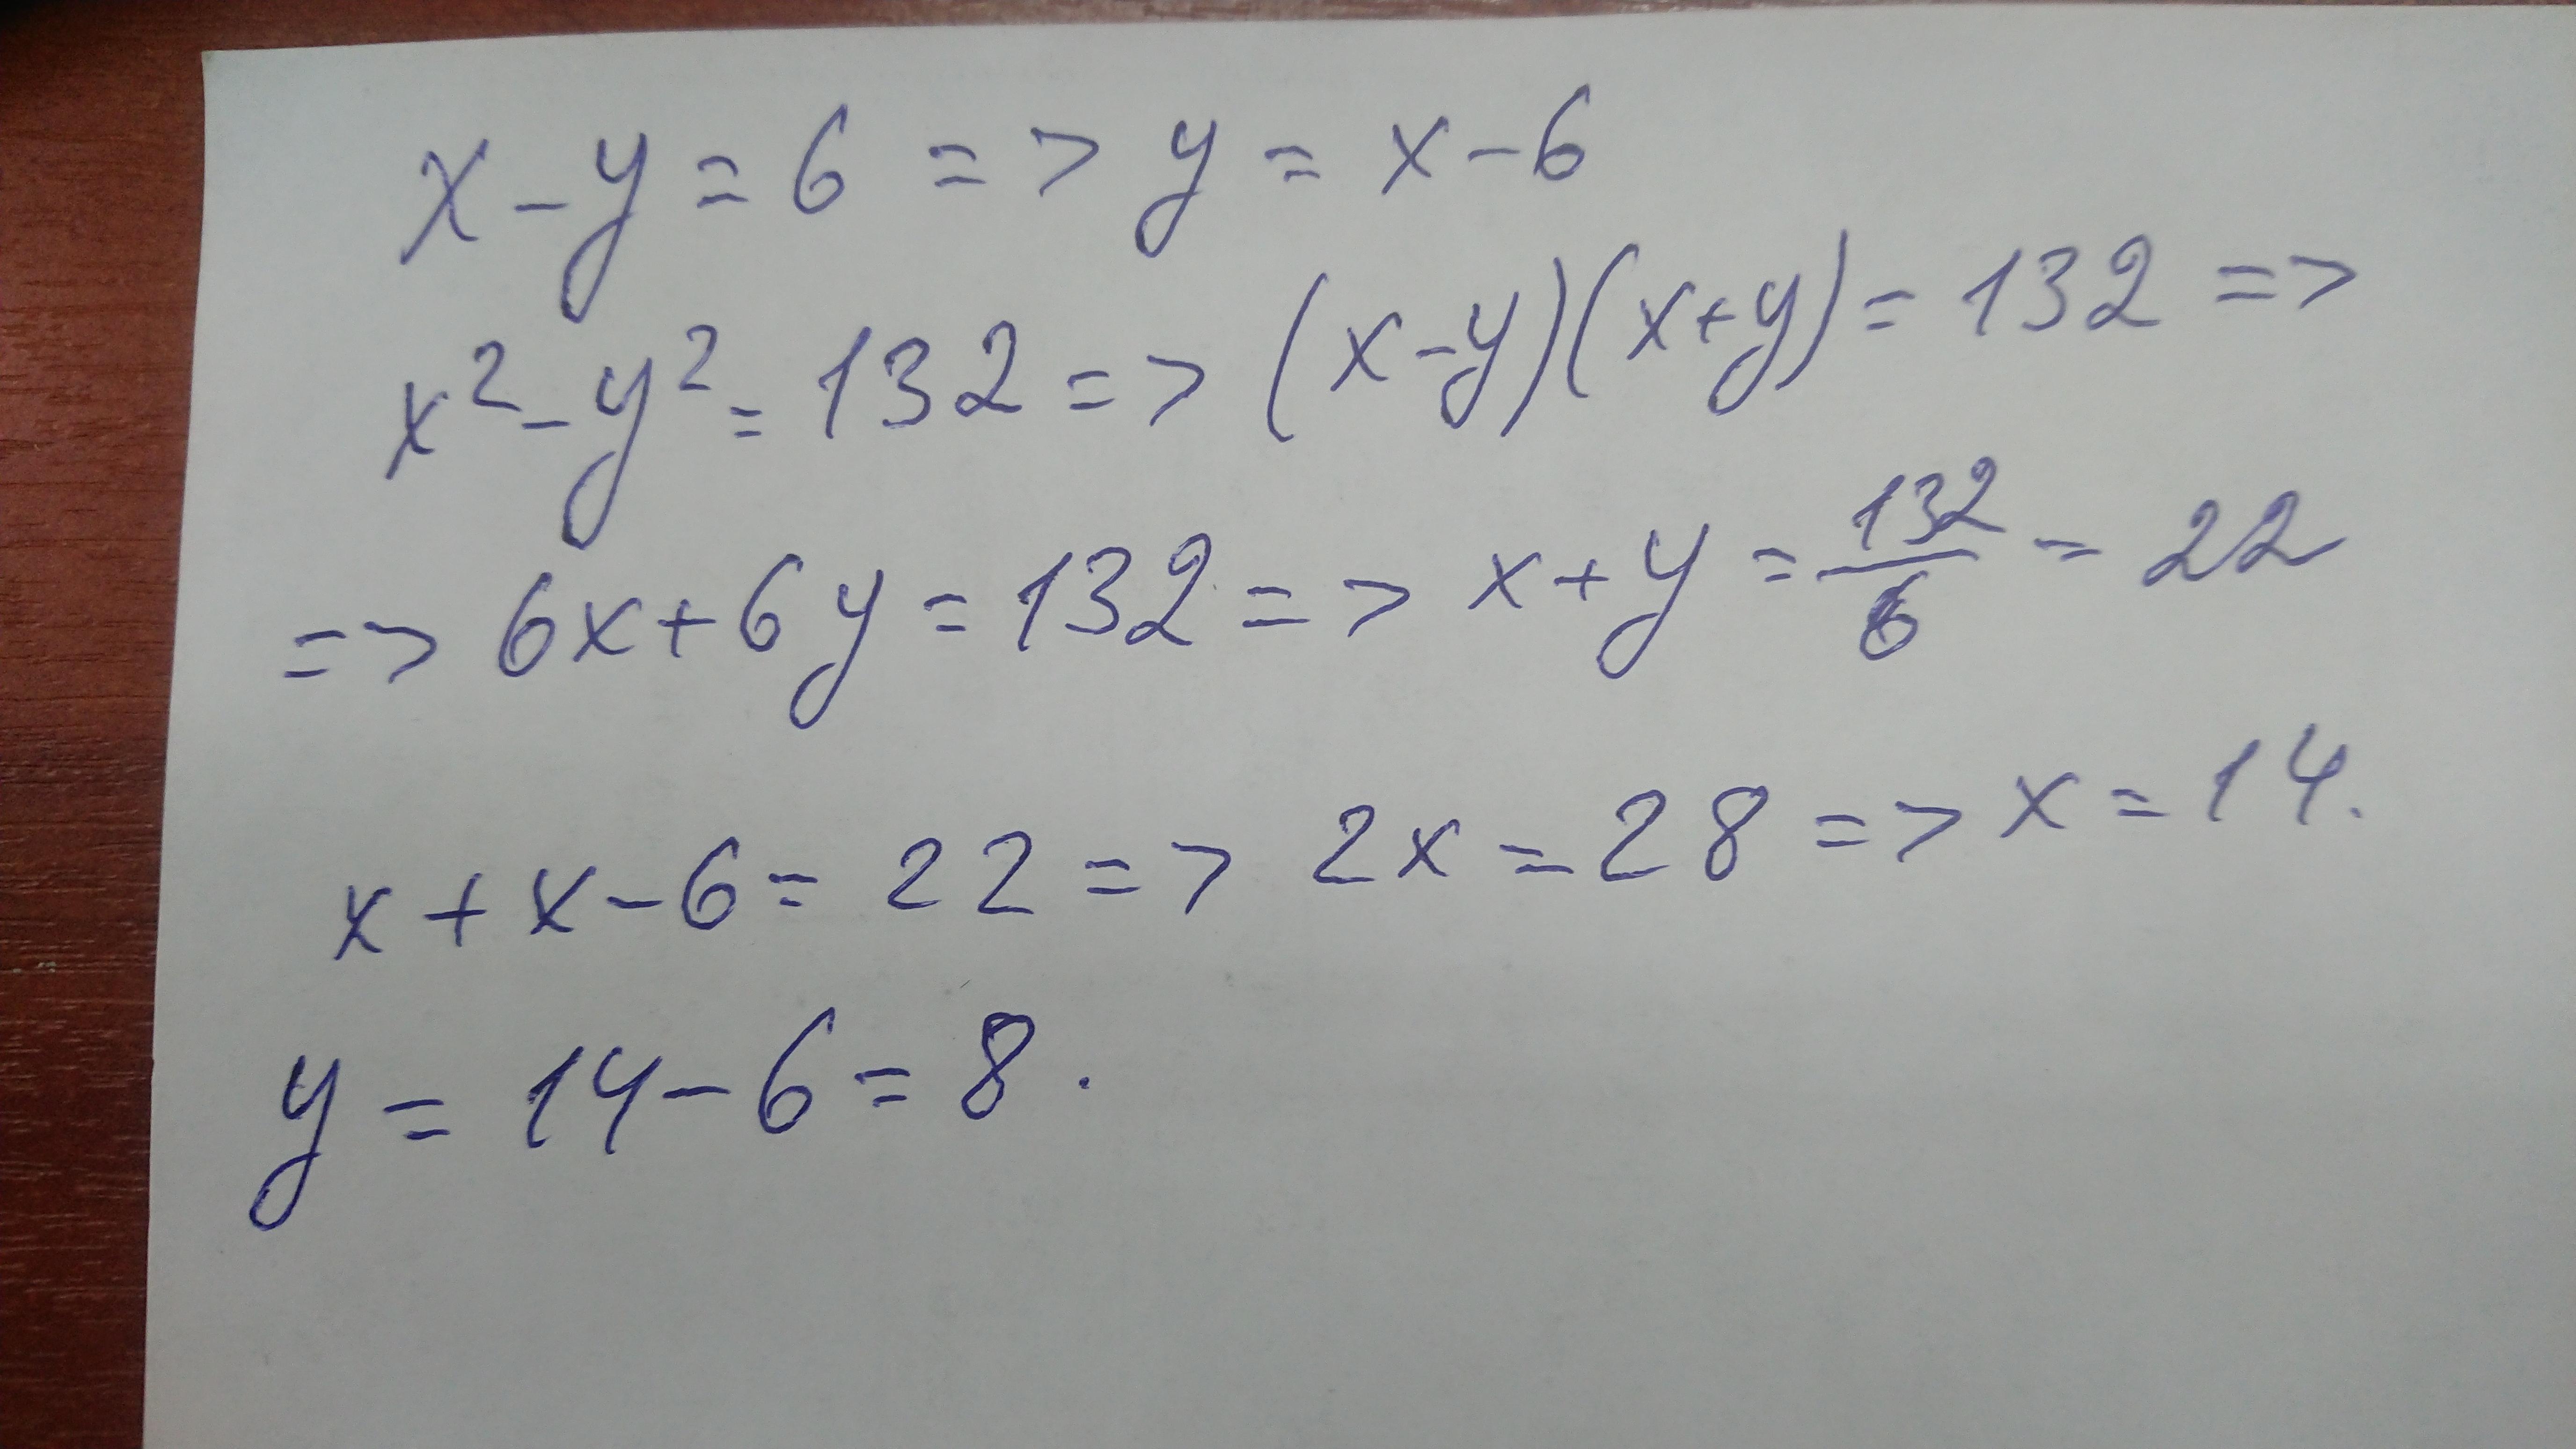 x - y = 6 => y = x - 6
x² - y² = 132 => (x - y)(x + y) = 132 =>
=> 6x + 6y = 132 => x + y = 132/6 = 22
x + x - 6 = 22 => 2x = 28 => x = 14.
y = 14 - 6 = 8.